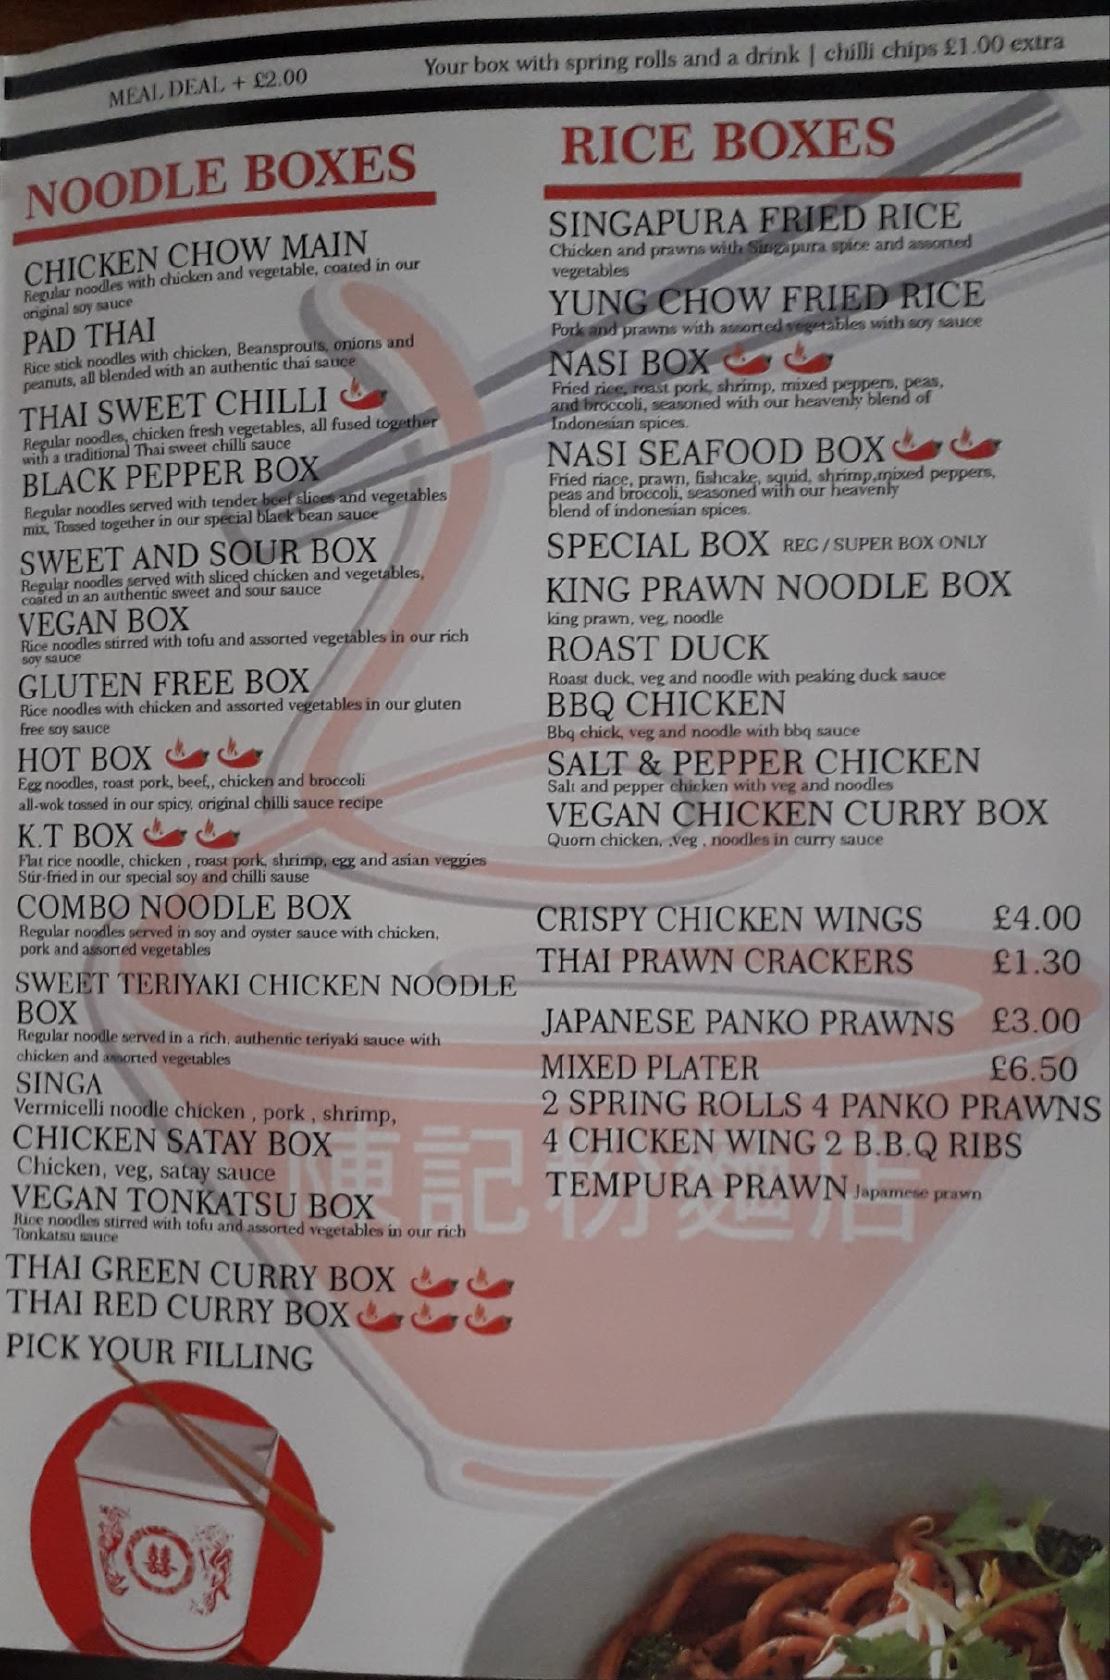 MEAL DEAL + £2.00
Your box with spring rolls and a drink | chilli chips £1.00 extra
NOODLE BOXES
CHICKEN CHOW MAIN
Regular noodles with chicken and vegetable, coated in our
original soy sauce
PAD THAI
Rice stick noodles with chicken, Beansprouts, onions and
peanuts, all blended with an authentic thai sauce
THAI SWEET CHILLI
Regular noodles, chicken fresh vegetables, all fused together
with a traditional Thai sweet chilli sauce
BLACK PEPPER BOX
Regular noodles served with tender beef slices and vegetables
mix, Tossed together in our special black bean sauce
SWEET AND SOUR BOX
Regular noodles served with sliced chicken and vegetables,
coated in an authentic sweet and sour sauce
VEGAN BOX
Rice noodles stirred with tofu and assorted vegetables in our rich
soy sauce
GLUTEN FREE BOX
Rice noodles with chicken and assorted vegetables in our gluten
free soy sauce
HOT BOX
Egg noodles, roast pork, beef,, chicken and broccoli
all-wok tossed in our spicy, original chilli sauce recipe
K.T BOX
Flat rice noodle, chicken , roast pork, shrimp, egg and asian veggies
Stir-fried in our special soy and chilli sause
COMBO NOODLE BOX
Regular noodles served in soy and oyster sauce with chicken,
pork and assorted vegetables
SWEET TERIYAKI CHICKEN NOODLE
BOX
Regular noodle served in a rich, authentic teriyaki sauce with
chicken and assorted vegetables
SINGA
Vermicelli noodle chicken , pork , shrimp,
CHICKEN SATAY BOX
Chicken, veg, satay sauce
VEGAN TONKATSU BOX
Rice noodles stirred with tofu and assorted vegetables in our rich
Tonkatsu sauce
THAI GREEN CURRY BOX
THAI RED CURRY BOX
PICK YOUR FILLING
RICE BOXES
SINGAPURA FRIED RICE
Chicken and prawns with Singapura spice and assorted
vegetables
YUNG CHOW FRIED RICE
Pork and prawns with assorted vegetables with soy sauce
NASI BOX
Fried rice, roast pork, shrimp, mixed peppers, peas,
and broccoli, seasoned with our heavenly blend of
Indonesian spices.
NASI SEAFOOD BOX
Fried riace, prawn, fishcake, squid, shrimp,mixed peppers,
peas and broccoli, seasoned with our heavenly
blend of indonesian spices.
SPECIAL BOX REG / SUPER BOX ONLY
KING PRAWN NOODLE BOX
king prawn, veg, noodle
ROAST DUCK
Roast duck, veg and noodle with peaking duck sauce
BBQ CHICKEN
Bbq chick, veg and noodle with bbq sauce
SALT & PEPPER CHICKEN
Salt and pepper chicken with veg and noodles
VEGAN CHICKEN CURRY BOX
Quorn chicken, ,veg , noodles in curry sauce
CRISPY CHICKEN WINGS £4.00
THAI PRAWN CRACKERS £1.30
JAPANESE PANKO PRAWNS £3.00
MIXED PLATER £6.50
2 SPRING ROLLS 4 PANKO PRAWNS
4 CHICKEN WING 2 B.B.Q RIBS
TEMPURA PRAWN Japamese prawn
陳記粉麵店
囍